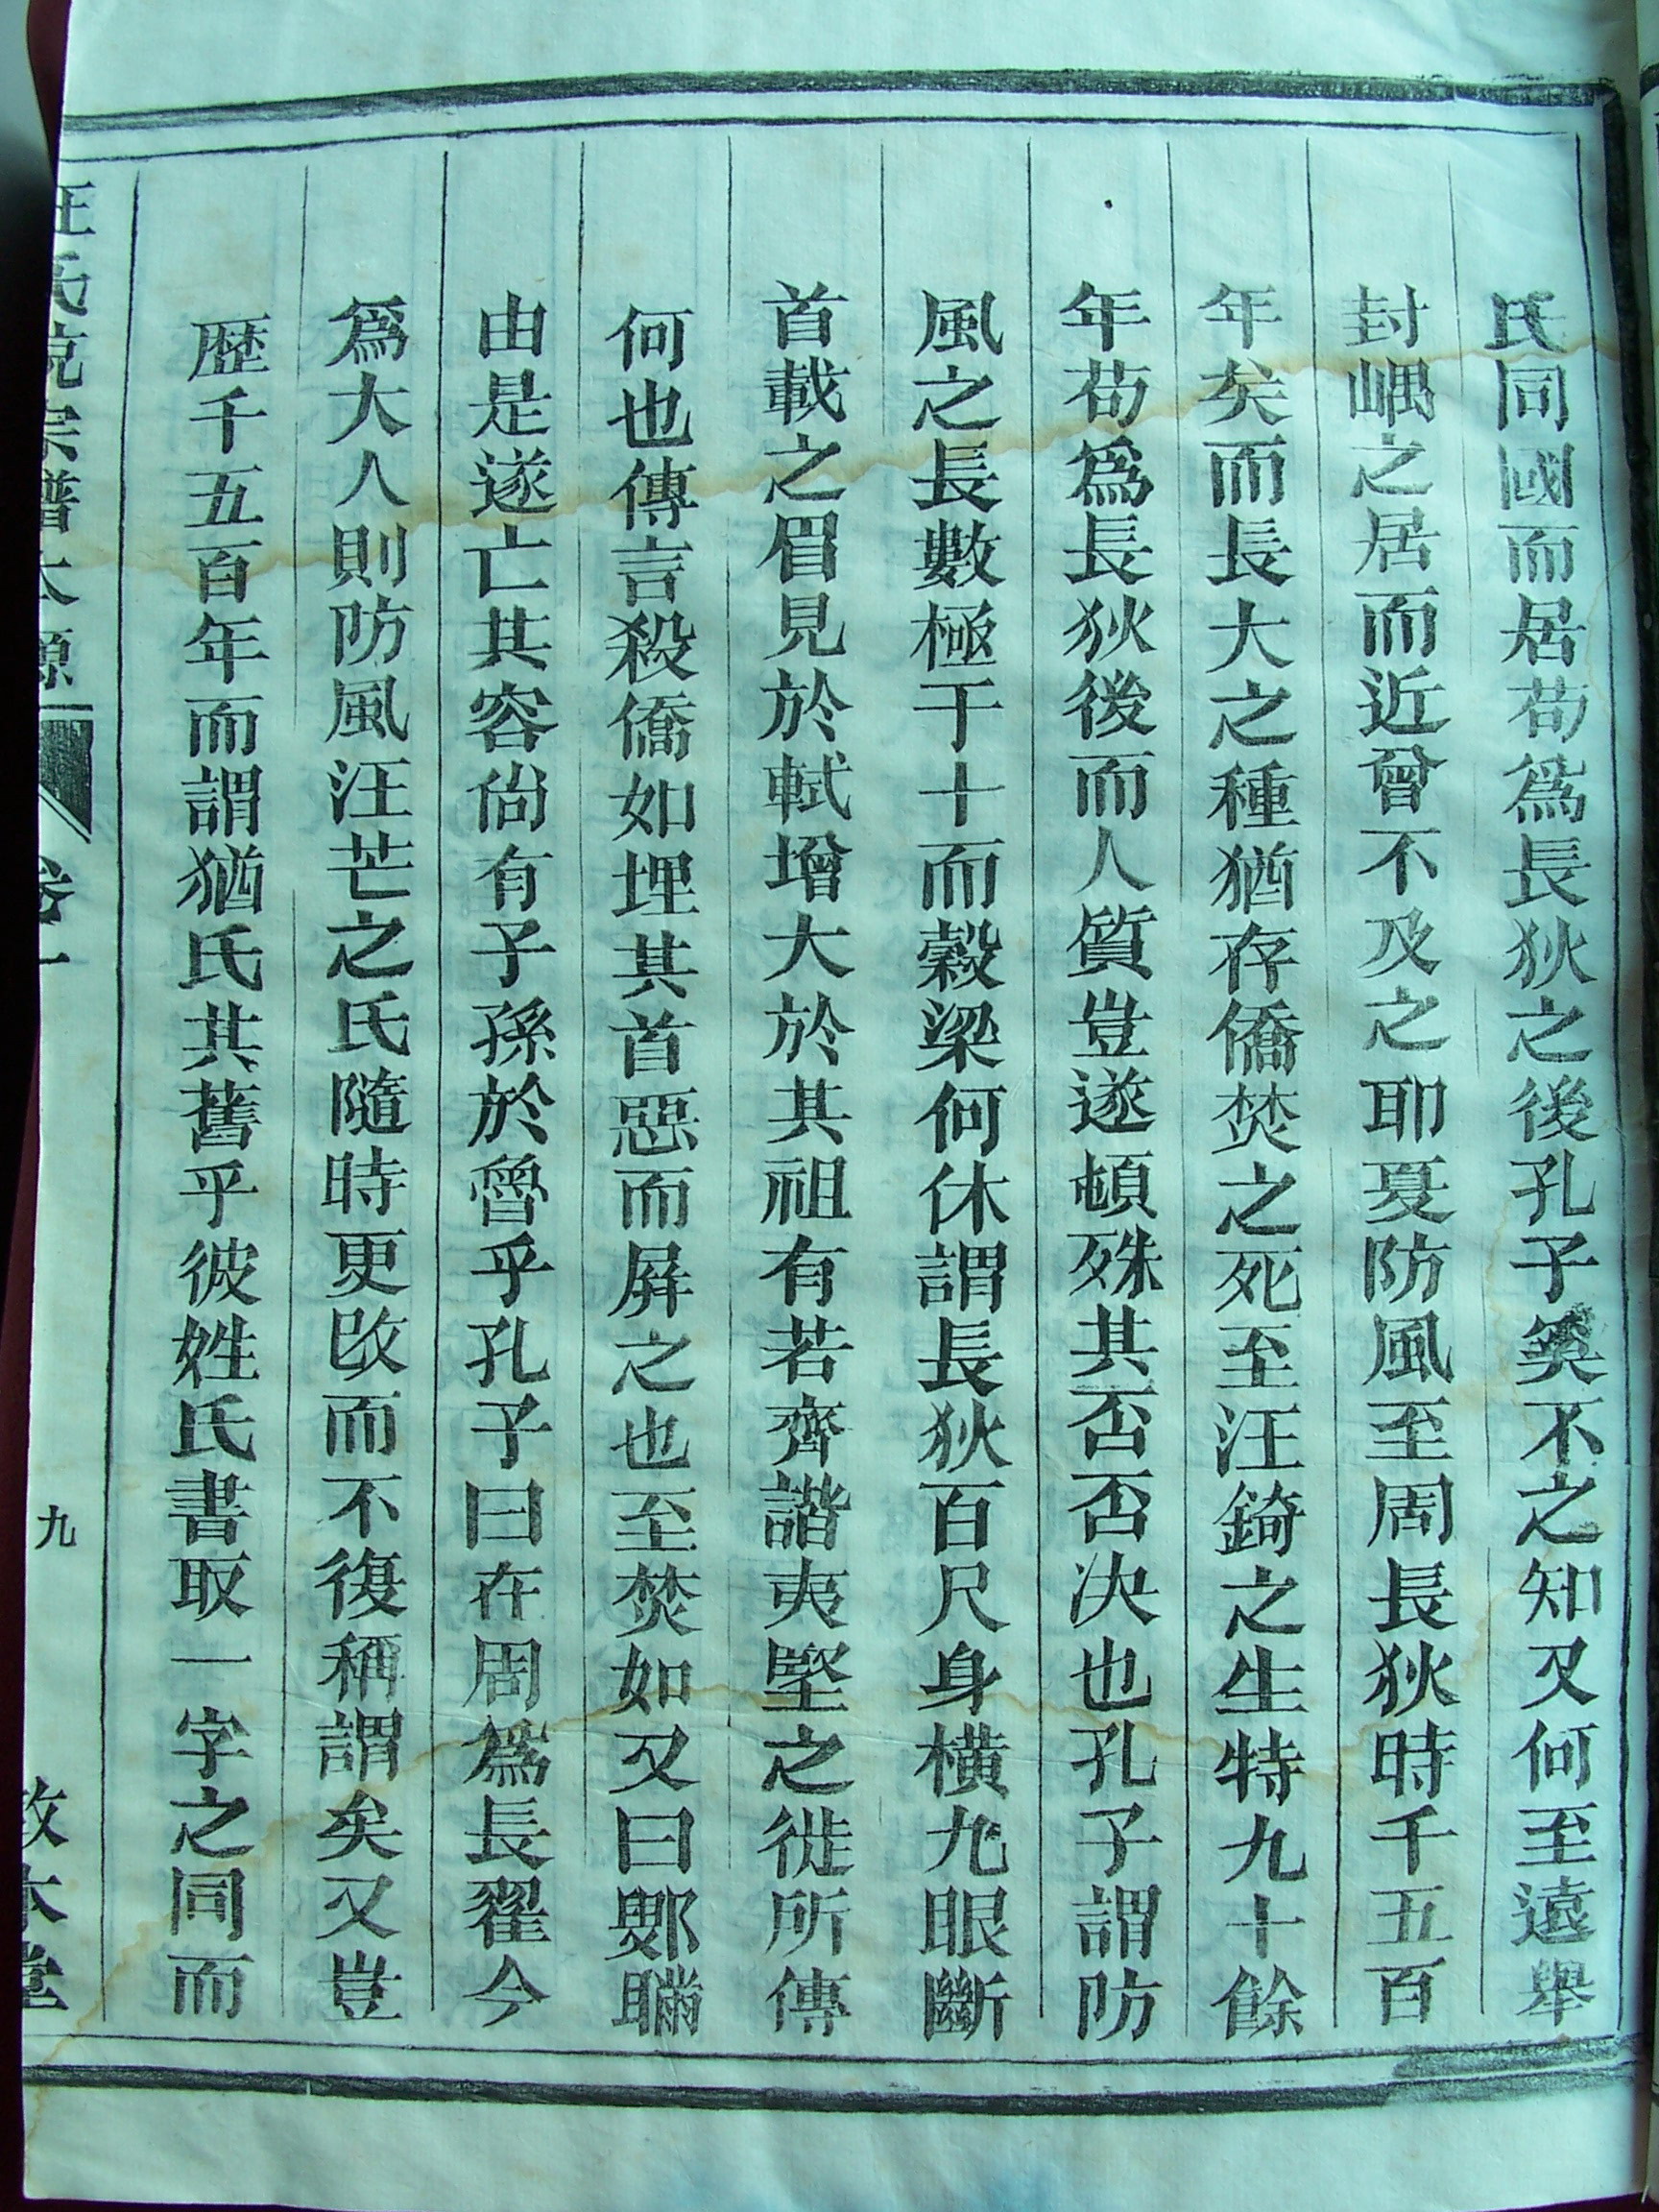 氏同國而居茍爲長狄之後孔子奚不之知又何至遠舉
封嵎之居而近曾不及之耶夏防風至周長狄時千五百
年矣而長大之種猶存僑焚之死至汪錡之生特九十餘
年茍爲長狄後而人質豈遂頓殊其否否決也孔子謂防
風之長數極于十而穀梁何休謂長狄百尺身橫九眼斷
首載之眉見於軾增大於其祖有若齊諧夷堅之徙所傳
何也傳言殺僑如埋其首惡而屏之也至焚如又曰鄋瞞
由是遂亡其容尙有子孫於魯乎孔子曰在周爲長翟今
爲大人則防風汪芒之氏隨時更改而不復稱謂矣又豈
歷千五百年而謂猶氏其舊乎彼姓氏書取一字之同而
汪氏統宗譜本源 卷一 九 敦本堂